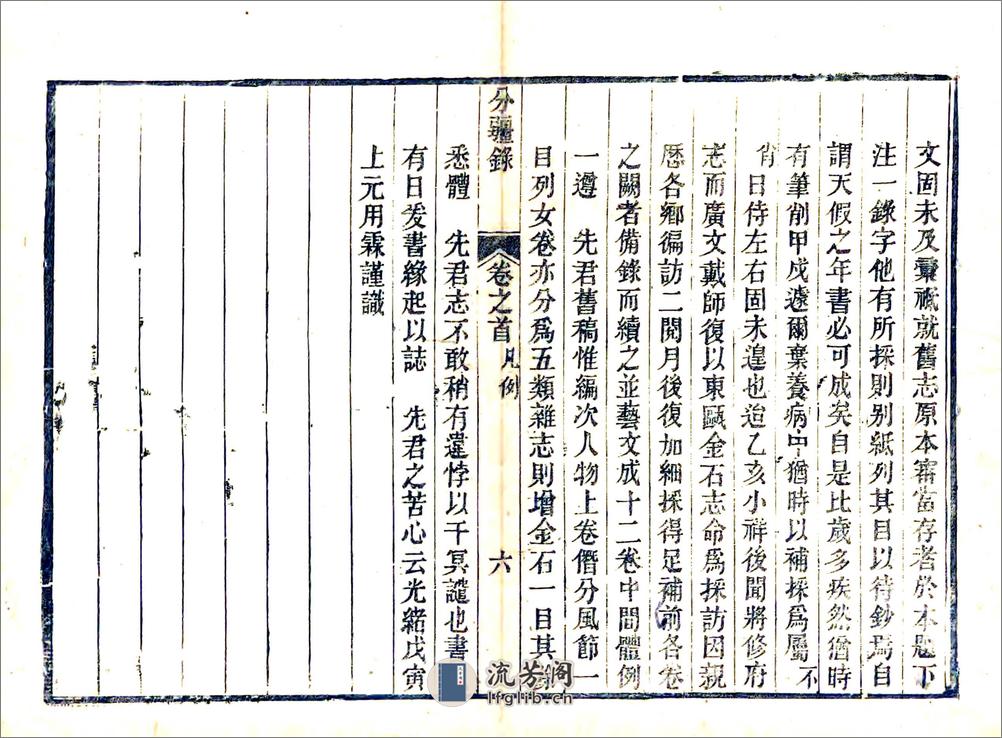 文固未及彙祗就舊志原本審當存者於本題下
注一錄字他有所採則別紙列其目以待鈔焉自
謂天假之年書必可成矣自是比歲多疾然猶時
有筆削甲戌遽爾棄養病中猶時以補採爲屬 不
肖 日侍左右固未遑也迨乙亥小祥後聞將修府
志而廣文戴師復以東甌金石志命爲採訪因親
歷各鄉徧訪二閱月後復加細採得足補前各卷
之闕者備錄而續之並藝文成十二卷中間體例
一遵 先君舊稿惟編次人物上卷僭分風節一
目列女卷亦分爲五類雜志則增金石一目其
悉體 先君志不敢稍有違悖以干冥譴也書
有日爰書緣起以誌 先君之苦心云光緒戊寅
上元用霖謹識
分疆錄 卷之首 凡例 六
流芳閣
lfglib.cn